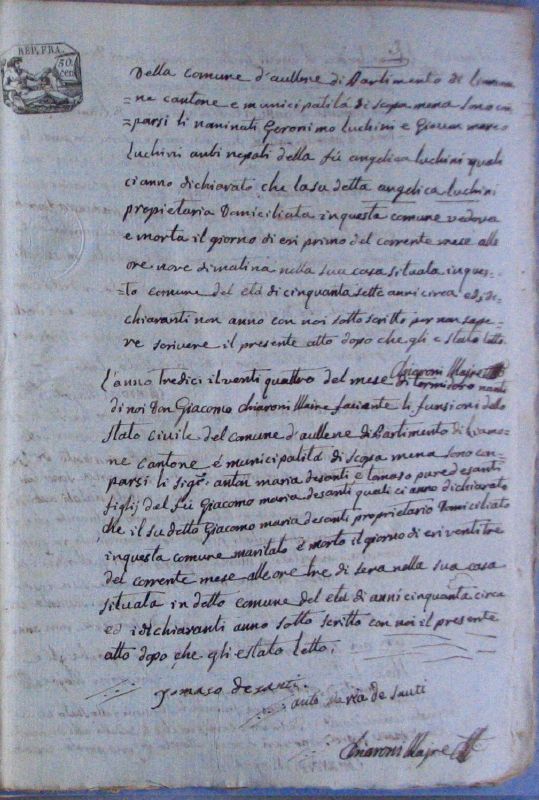 REP. FRA.
50.
cen
3
Della comune d'aullene di Partimento di Liamo
=ne cantone e municipalità di scopa mena sono con
=parsi li naninati Geronimo Luchini e Giovan marco
Luchini anti nepoti della fù angelica luchini quali
ci anno dichiarato che la su detta angelica luchini
propietaria Damiciliata in questa comune vedova
e morta il giorno di eri primo del corrente mese alle
ore nove di matina nella sua casa situata in ques-
-to comune del età di cinquanta sette anni circa ed i de-
chiaranti non anno con noi sotto scritto per non sape-
re scrivere il presente atto dopo che gli e stato letto
Chiaroni Maire
L'anno tredici il venti quattro del mese di termidoro nanti
di noi Don Giacomo chiaroni Maire faciente li funsioni dello
stato civile del comune d'aullene di Partimento di Liamo=
ne cantone é municipalità di scopa mena sono con=
parsi li sigri. anton maria desanti e tomaso pure desanti
figlj del fú Giacomo maria desanti quali ci anno dichiarato
che il su detto Giacomo maria desanti proprietario Domiciliato
in questa comune maritato é morto il giorno di eri venti tre
del corrente mese alle ore tre di sera nella sua casa
situata in detto comune del età di anni cinquanta circa
ed i dichiaranti anno sotto scritto con noi il presente
atto dopo che gli e stato letto.
Tomaso desanti.
anto maria de santi
Chiaroni Maire